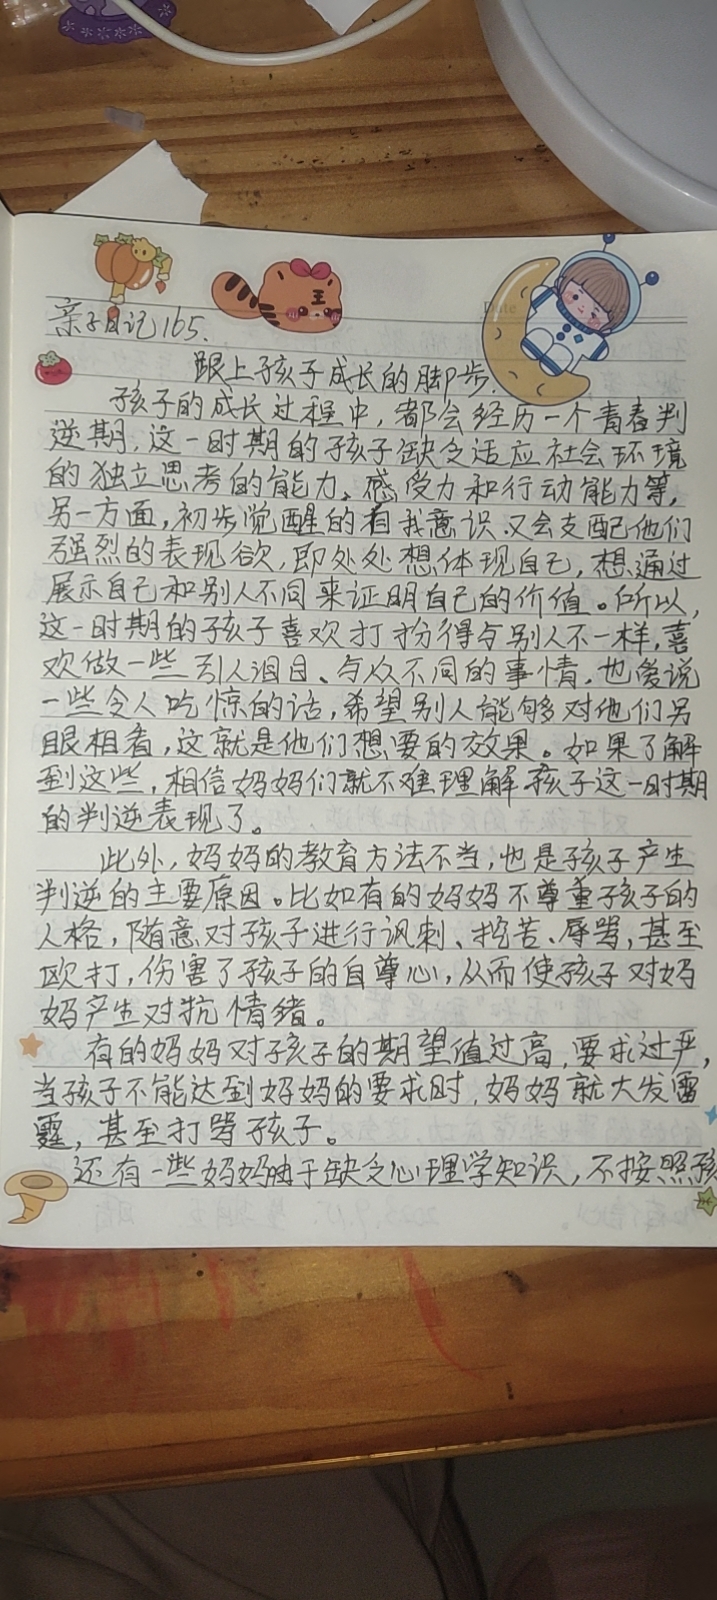 Date
亲子日记165.
跟上孩子成长的脚步.
孩子的成长过程中,都会经历一个青春判
逆期,这一时期的孩子缺乏适应社会环境
的独立思考的能力、感受力和行动能力等,
另一方面,初步觉醒的自我意识又会支配他们
强烈的表现欲,即处处想体现自己,想通过
展示自己和别人不同来证明自己的价值。所以,
这一时期的孩子喜欢打扮得与别人不一样,喜
欢做一些引人泪目、与众不同的事情,也爱说
一些令人吃惊的话,希望别人能够对他们另
眼相看,这就是他们想要的效果。如果了解
到这些,相信妈妈们就不难理解孩子这一时期
的判逆表现了。
此外,妈妈的教育方法不当,也是孩子产生
判逆的主要原因。比如有的妈妈不尊重孩子的
人格,随意对孩子进行讽刺、挖苦、辱骂,甚至
欧打,伤害了孩子的自尊心,从而使孩子对妈
妈产生对抗情绪。
有的妈妈对孩子的期望值过高,要求过严,
当孩子不能达到妈妈的要求时,妈妈就大发雷
霆,甚至打骂孩子。
还有一些妈妈由于缺乏心理学知识,不按照孩